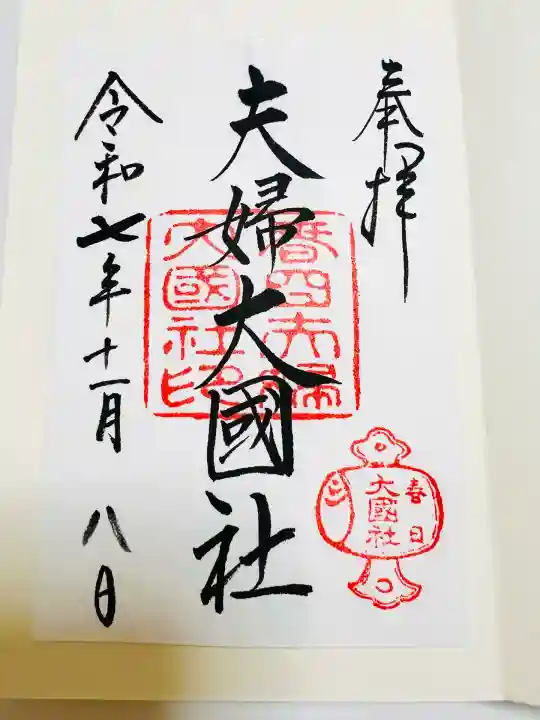 奉拝
夫婦大國社
令和七年十一月 八日
春日夫婦
大國社印
春日
大國社